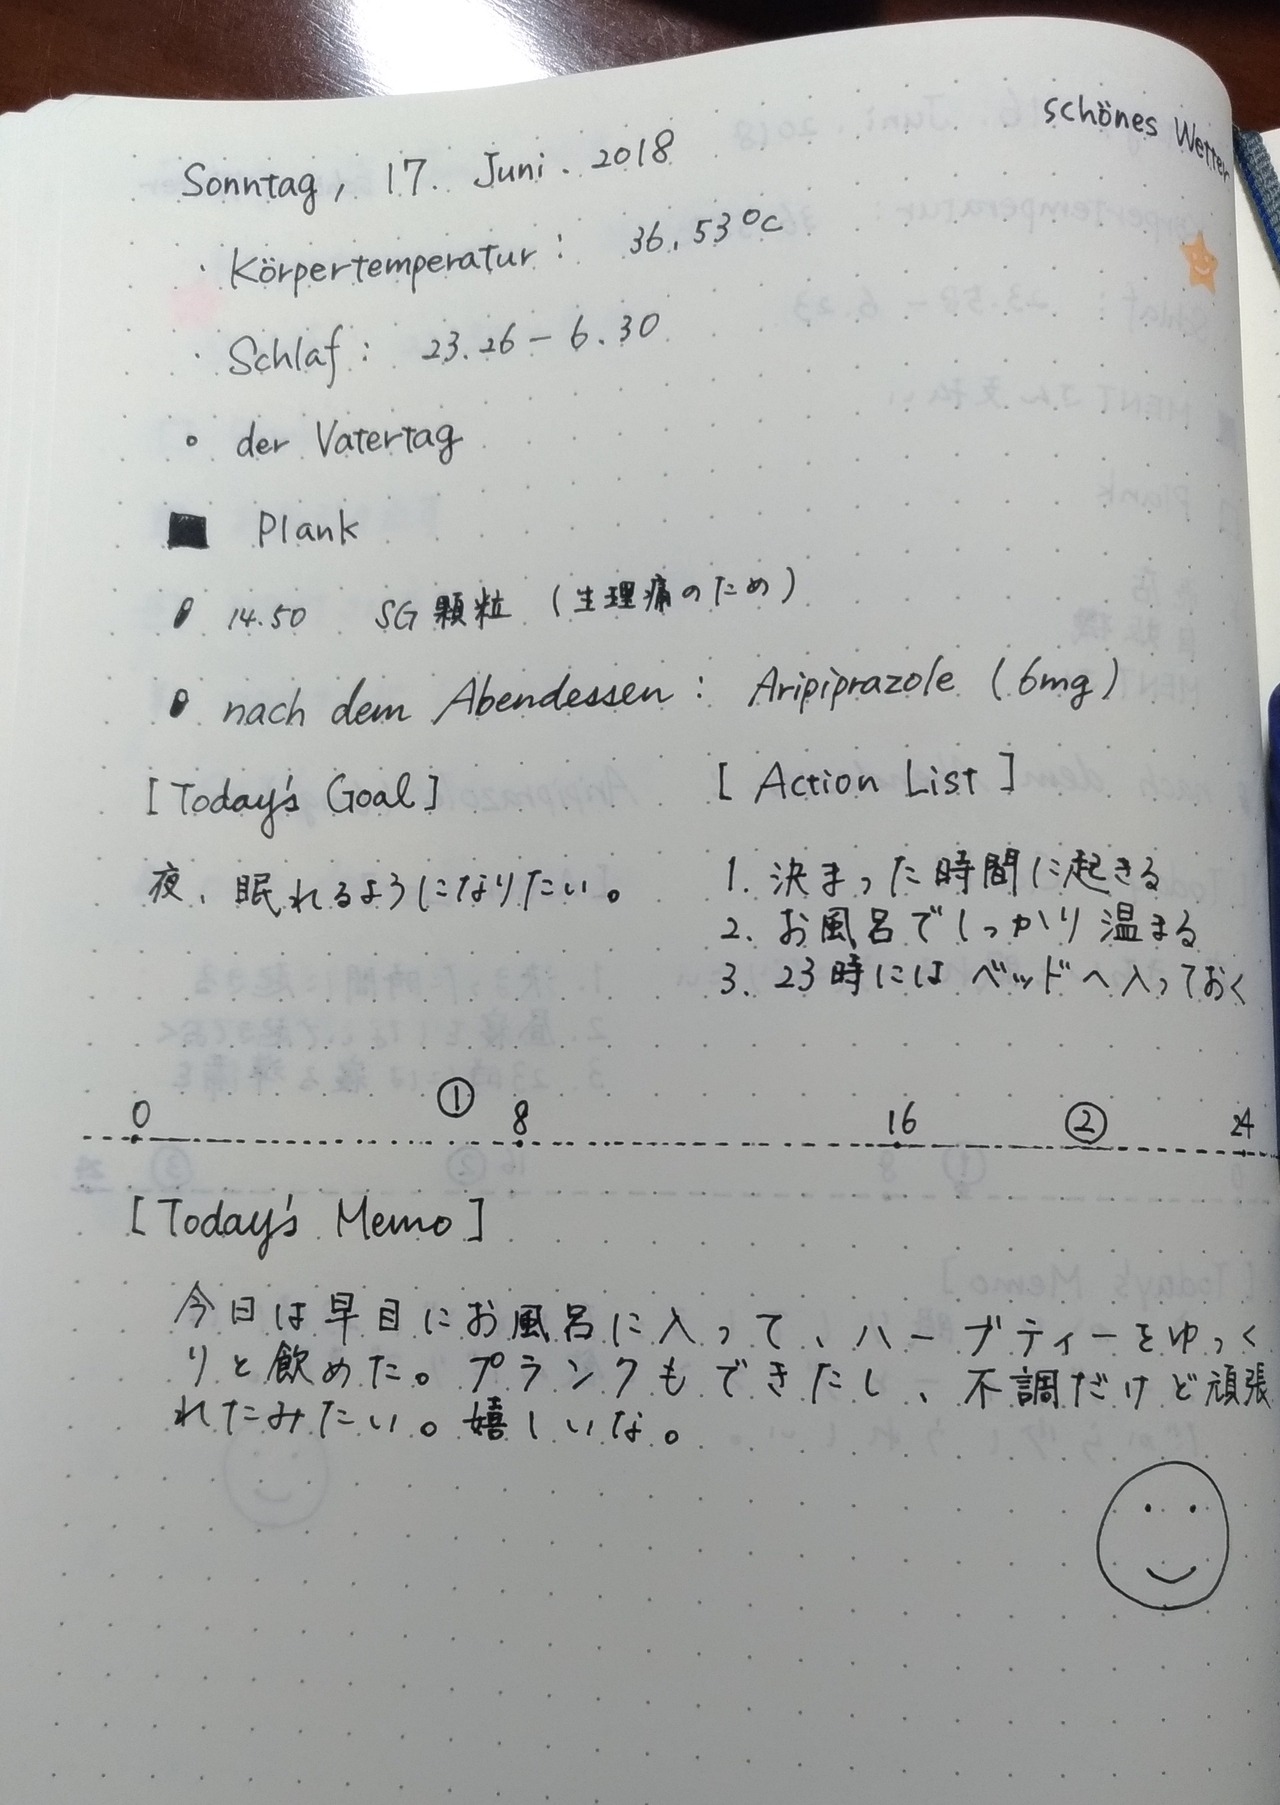 schönes Wetter
Sonntag, 17. Juni. 2018
・Körpertemperatur : 36.53℃
・Schlaf : 23.26 - 6.30
○ der Vatertag
■ Plank
14.50 SG顆粒 (生理痛のため)
nach dem Abendessen : Aripiprazole (6mg)
[Today's Goal]
夜、眠れるようになりたい。
[Action List]
1. 決まった時間に起きる
2. お風呂でしっかり温まる
3. 23時にはベッドへ入っておく
0 ① 8 16 ② 24
[Today's Memo]
今日は早目にお風呂に入って、ハーブティーをゆっく
りと飲めた。プランクもできたし、不調だけど頑張
れたみたい。嬉しいな。